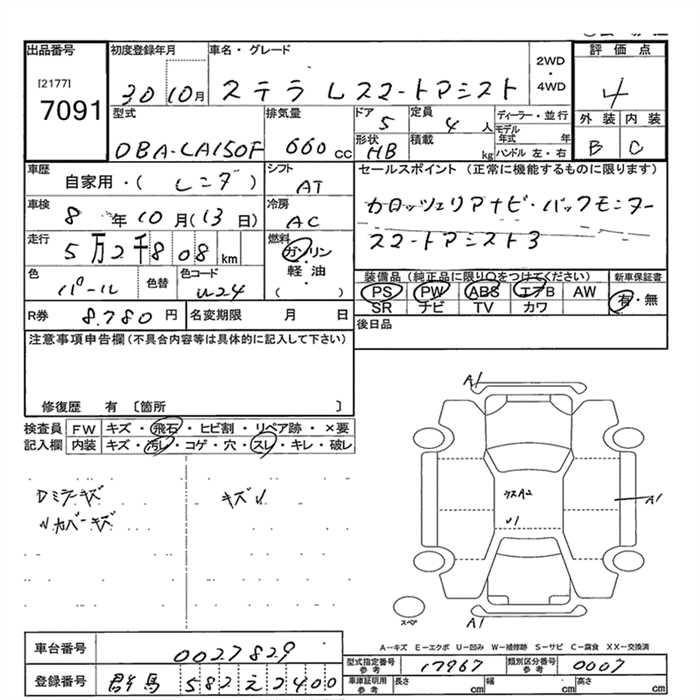 出品番号 初度登録年月 車名・グレード 評価点
[2177]
7091
30 10月 ステラ Lスマートアシスト 2WD・4WD 4
外装 内装
B C
型式 排気量 ドア 定員 ディーラー・並行
DBA-LA150F 660cc 5 4人
モデル年式 年
形状 積載 ハンドル 左・右
HB kg
車歴 シフト セールスポイント (正常に機能するものに限ります)
自家用・( レンタ ) AT
車検 冷房 カロッツェリアナビ・バックモニター
8年10月(13日) AC スマートアシスト3
走行 燃料
5万2千808km ガソリン・軽油・( )
色 色替 色コード 装備品(純正品に限り○をつけてください) 新車保証書
パール W24 PS PW ABS エアB AW 有・無
SR ナビ TV カワ
R券 8.780円 名変期限 月 日 後日品
注意事項申告欄(不具合内容等は具体的に記入して下さい)
修復歴 有 〔箇所 〕
検査員 FW キズ・飛石・ヒビ割・リペア跡・×要
記入欄 内装 キズ・汚レ・コゲ・穴・スレ・キレ・破レ
Dミラーキズ キズ
カバーキズ
A1
A1
A1
スペア
A-キズ E-エクボ U-凹み W-補修跡 S-サビ C-腐食 XX-交換済
車台番号 0027829
型式指定番号 参考 17967 類別区分番号 参考 0007
登録番号 群馬 582 え 2400
車庫証明用 参考 長さ cm 幅 cm 高さ cm